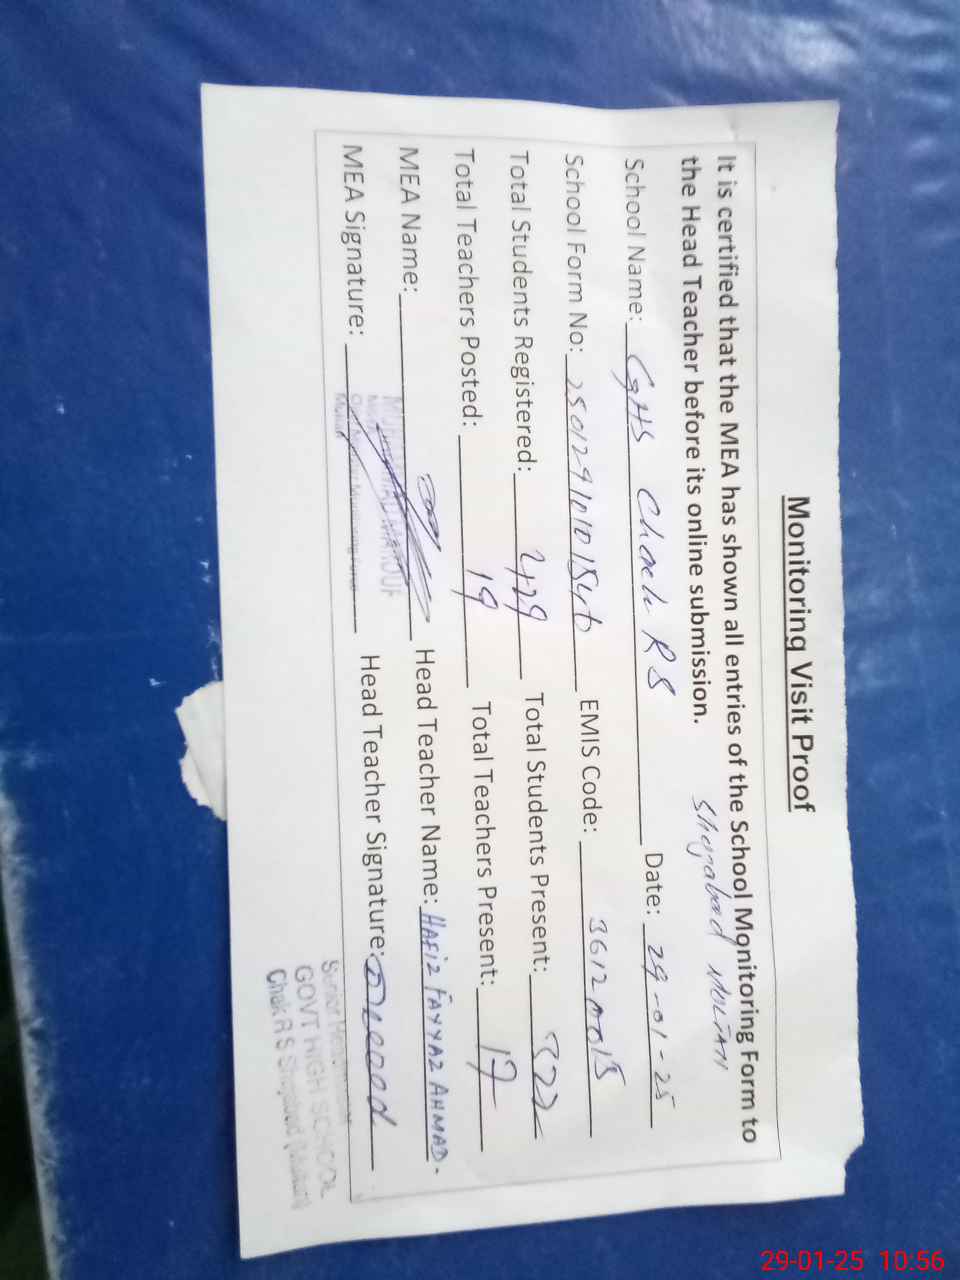 Monitoring Visit Proof
It is certified that the MEA has shown all entries of the School Monitoring Form to
the Head Teacher before its online submission.
Shujabad Multan
School Name: GHS Chack R S Date: 29-01-25
School Form No: EMIS Code: 36120015
Total Students Registered: 429 Total Students Present: 322
Total Teachers Posted: 19 Total Teachers Present: 17
MEA Name: Head Teacher Name: HAFIZ FAYYAZ AHMAD.
MEA Signature: Head Teacher Signature:
GOVT HIGH SCHOOL
Chak R S
29-01-25 10:56